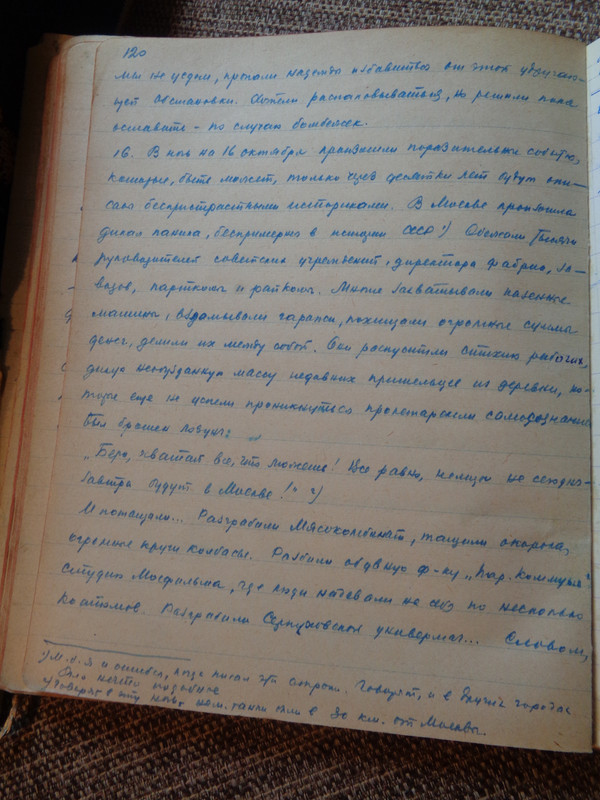 120
мы не уедем, пропали надежды избавиться от этой удручаю-
щей обстановки. Хотели распаковываться, но решили пока
оставить - по случаю бомбежек.
16. В ночь на 16 октября произошли поразительные события,
которые, быть может, только через десятки лет будут опи-
саны беспристрастными историками. В Москве произошла
дикая паника, беспримерная в истории СССР ¹) Бежали тысячи
руководителей советских учреждений, директора фабрик, за-
водов, парткомы и райкомы. Многие захватывали казенные
машины, взламывали гаражи, похищали огромные суммы
денег, делили их между собой. Они распустили стихию рабочих,
дикую необузданную массу недавних пришельцев из деревни, ко-
торые еще не успели проникнуться пролетарским самосознанием
Был брошен лозунг:
„Бери, хватай все, что можешь! Все равно, немцы не сегодня-
завтра будут в Москве!" ²)
И потащили... Разграбили Мясокомбинат, тащили окорока,
огромные круги колбасы. Разбили обувную ф-ку „Пар. Коммуна"
студию Мосфильма, где люди надевали на себя по несколько
костюмов. Разграбили Серпуховской универмаг... Словом,
¹) М. б. я и ошибся, когда писал эти строки. Говорят, и в других городах
было нечто подобное
²) Говорят в эту ночь нем. танки были в 30 км. от Москвы.